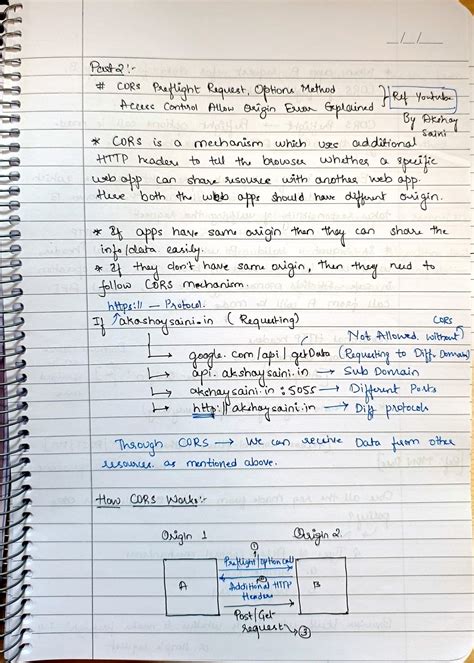 __/__/__
Part 2 :-
# CORS Preflight Request, Options Method
Access Control Allow Origin Error Explained
Ref Youtube
By Akshay
Saini
* CORS is a mechanism which uses additional
HTTP headers to tell the browser whether a specific
web app can share resource with another web app.
Here both the web apps should have different origin.
* If apps have same origin then they can share the
info/data easily.
* If they don't have same origin, then they need to
follow CORS mechanism.
https:// — Protocol.
If akashaysaini.in (Requesting)
CORS
Not Allowed without
→ google.com/api/getData (Requesting to Diff Domain)
→ api.akshaysaini.in → Sub Domain
→ akshaysaini.in:5055 → Different Ports
→ http://akshaysaini.in → Diff protocols
Through CORS → We can receive Data from other
resources as mentioned above.
How CORS Works :-
Origin 1 Origin 2
①
Preflight/option call
A B
②
Additional HTTP
Headers
Post/Get
request → ③